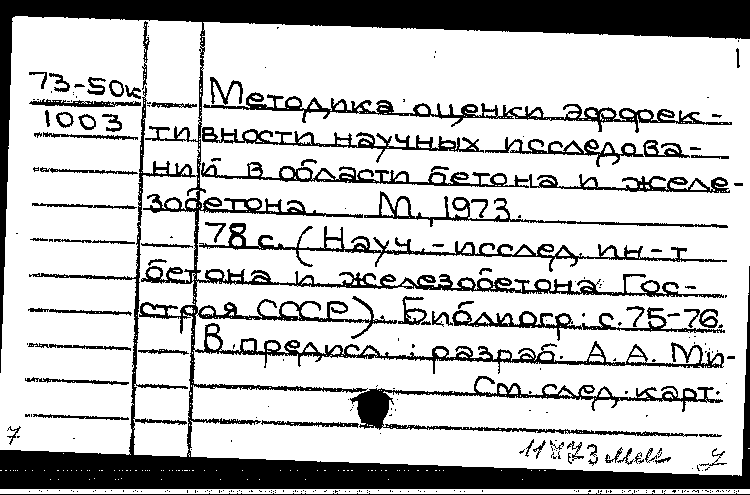 1
73-50к Методика оценки эффек-
1003 тивности научных исследова-
ний в области бетона и желе-
зобетона. М., 1973.
78 с. (Науч.-исслед. ин-т
бетона и железобетона Гос-
строя СССР). Библиогр.: с. 75-76.
В предисл.: разраб. А. А. Ми-
См. след. карт.
7